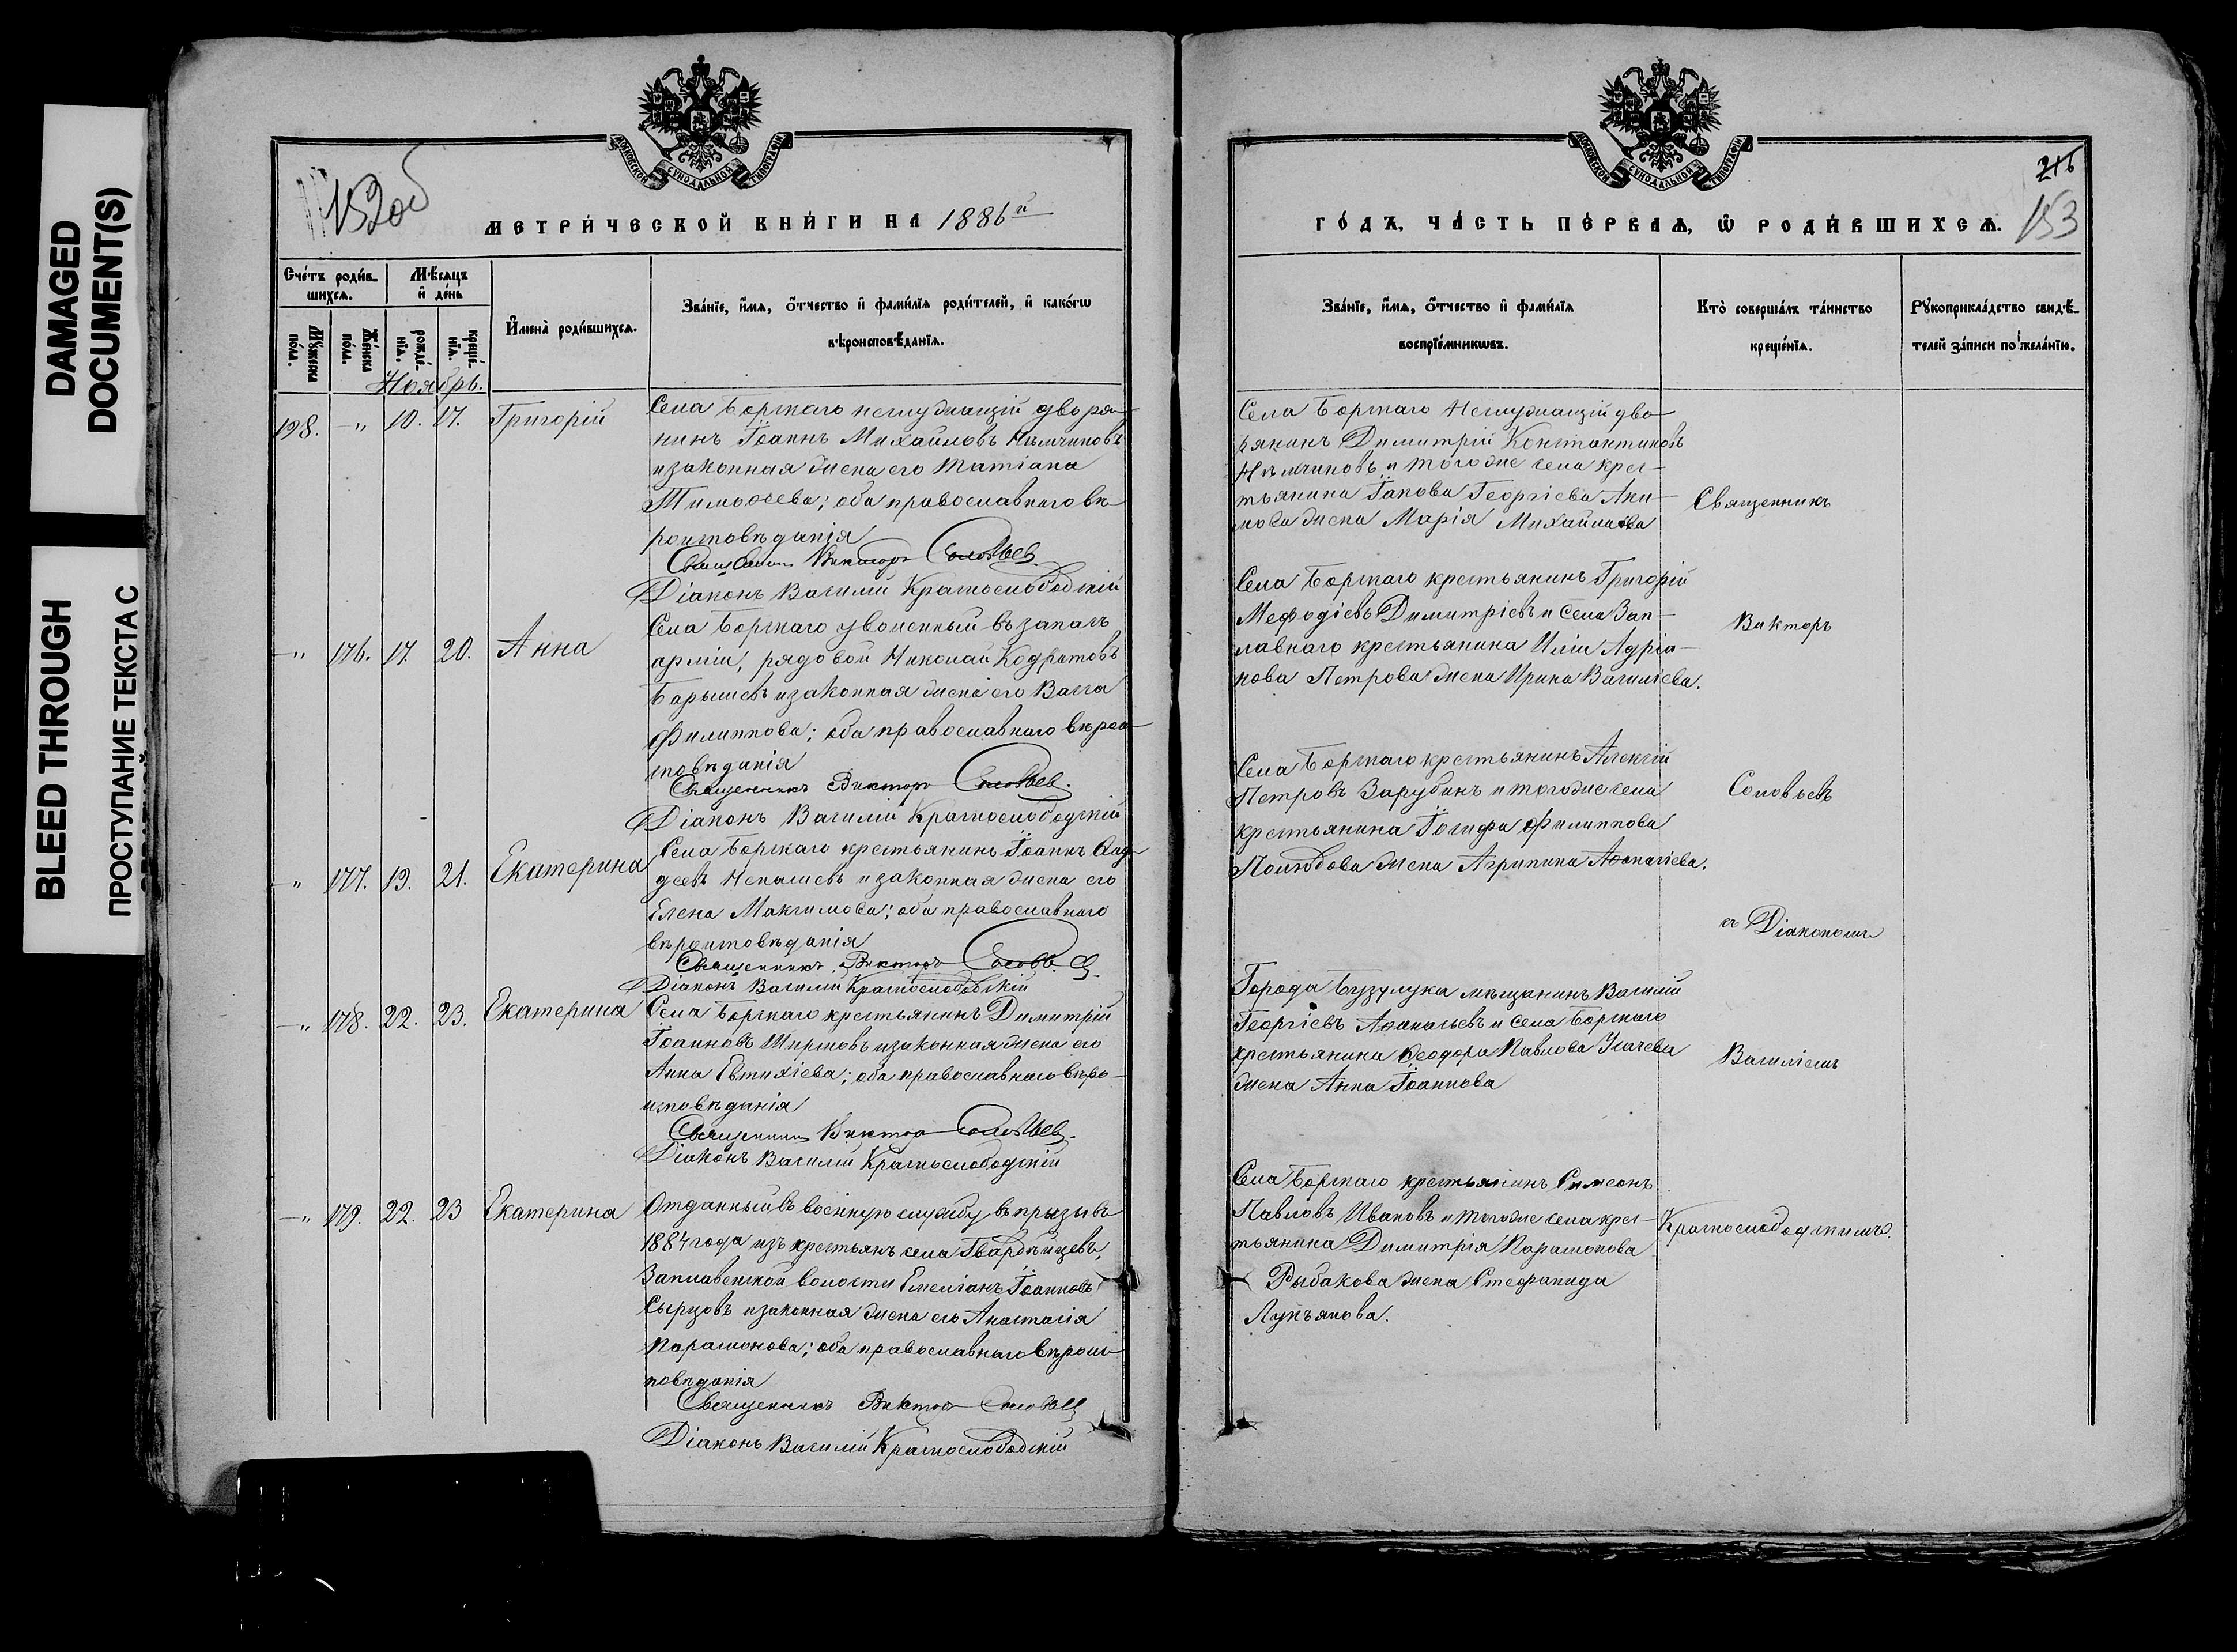 DAMAGED
DOCUMENT(S)
BLEED THROUGH
ПРОСТУПАНИЕ ТЕКСТА С
МОСКОВСКОЙ СѴНОДАЛЬНОЙ ТИПОГРАФІИ
152об
МЕТРИ́ЧЕСКОЙ КНИ́ГИ НА 1886й
Сче́тъ роди́в-
шихсѧ.
Мѣ́сѧцъ
и҆ де́нь
Мꙋ́жеска
по́ла.
Же́нска
по́ла.
рожде́-
нїѧ.
креще́-
нїѧ.
И҆мена̀ роди́вшихсѧ.
Зва́нїе, и҆́мѧ, о҆́тчество и҆ фами́лїѧ роди́телей, и҆ како́гѡ
вѣроисповѣ́данїѧ.
Ноябрь.
198. -" 10. 17. Григорій
Села Борскаго неслужащій дворя-
нинъ Іоаннъ Михайловъ Нѣмчиновъ
и законная жена его Татіана
Тимоѳеева; оба православнаго вѣ-
роисповѣданія
Священникъ Викторъ Соловьев
Діаконъ Василій Краснослободскій
-" 176. 17. 20. Анна
Села Борскаго уволенный въ запасъ
арміи, рядовой Николай Кодратовъ
Барышевъ и законная жена его Васса
Филиппова; оба православнаго вѣрои-
сповѣданія
Священникъ Викторъ Соловьев.
Діаконъ Василій Краснослободскій
-" 177. 19. 21. Екатерина
Села Борскаго крестьянинъ Іоаннъ Ѳад-
деевъ Ненашевъ и законная жена его
Елена Максимова; оба православнаго
вѣроисповѣданія
Священникъ Викторъ
Діаконъ Василій Краснослободскій
-" 178. 22. 23. Екатерина
Села Борскаго крестьянинъ Димитрій
Іоанновъ и законная жена его
Анна Евтихіева; оба православнаго вѣро-
исповѣданія
Священникъ Виктор Соловьев.
Діаконъ Василій Краснослободскій
-" 179. 22. 23 Екатерина
Отданный въ военную службу въ призывъ
1884 года изъ крестьянъ села Гвардѣйцевъ,
Заплавенской волости Емеліанъ Іоанновъ
Сырцовъ и законная жена его Анастасія
Парамонова; оба православнаго вѣроис-
повѣданія
Священникъ Виктор Соловьев
Діаконъ Василій Краснослободскій
МОСКОВСКОЙ СѴНОДАЛЬНОЙ ТИПОГРАФІИ
153
ГО́ДЪ, ЧА́СТЬ ПЕ́РВАѦ, Ѡ҆ РОДИ́ВШИХСѦ.
Зва́нїе, и҆́мѧ, о҆́тчество и҆ фами́лїѧ
воспрїе́мникѡвъ.
Кто̀ соверша́лъ та́инство
креще́нїѧ.
Рꙋкоприкла́дство свидѣ́-
телей за́писи по жела́нїю.
Села Борскаго неслужащій дво-
рянинъ Димитрій Константиновъ
Нѣмчиновъ и тогоже села крес-
тьянина Іакова Георгіева Аки-
мова жена Марія Михайлова
Села Борскаго крестьянинъ Григорій
Мефодіевъ Димитріевъ и села Зап-
лавнаго крестьянина Иліи Адріа-
нова Петрова жена Ирина Василіева.
Села Борскаго крестьянинъ Алексій
Петровъ Зарубинъ и тогоже села
крестьянина Іосифа Филиппова
Полюбова жена Агрипина Аѳанасіева.
Города Бузулука мѣщанинъ Василій
Георгіевъ Аѳанасьевъ и села Борскаго
крестьянина Ѳеодора Павлова Усачева
жена Анна Іоаннова
Села Борскаго крестьянинъ Симеонъ
Павловъ Ивановъ и тогоже села крес-
тьянина Димитрія Парамонова
Рыбакова жена Стефанида
Лукъянова.
Священникъ
Викторъ
Соловьевъ
съ Діакономъ
Василіемъ
Краснослободскимъ.